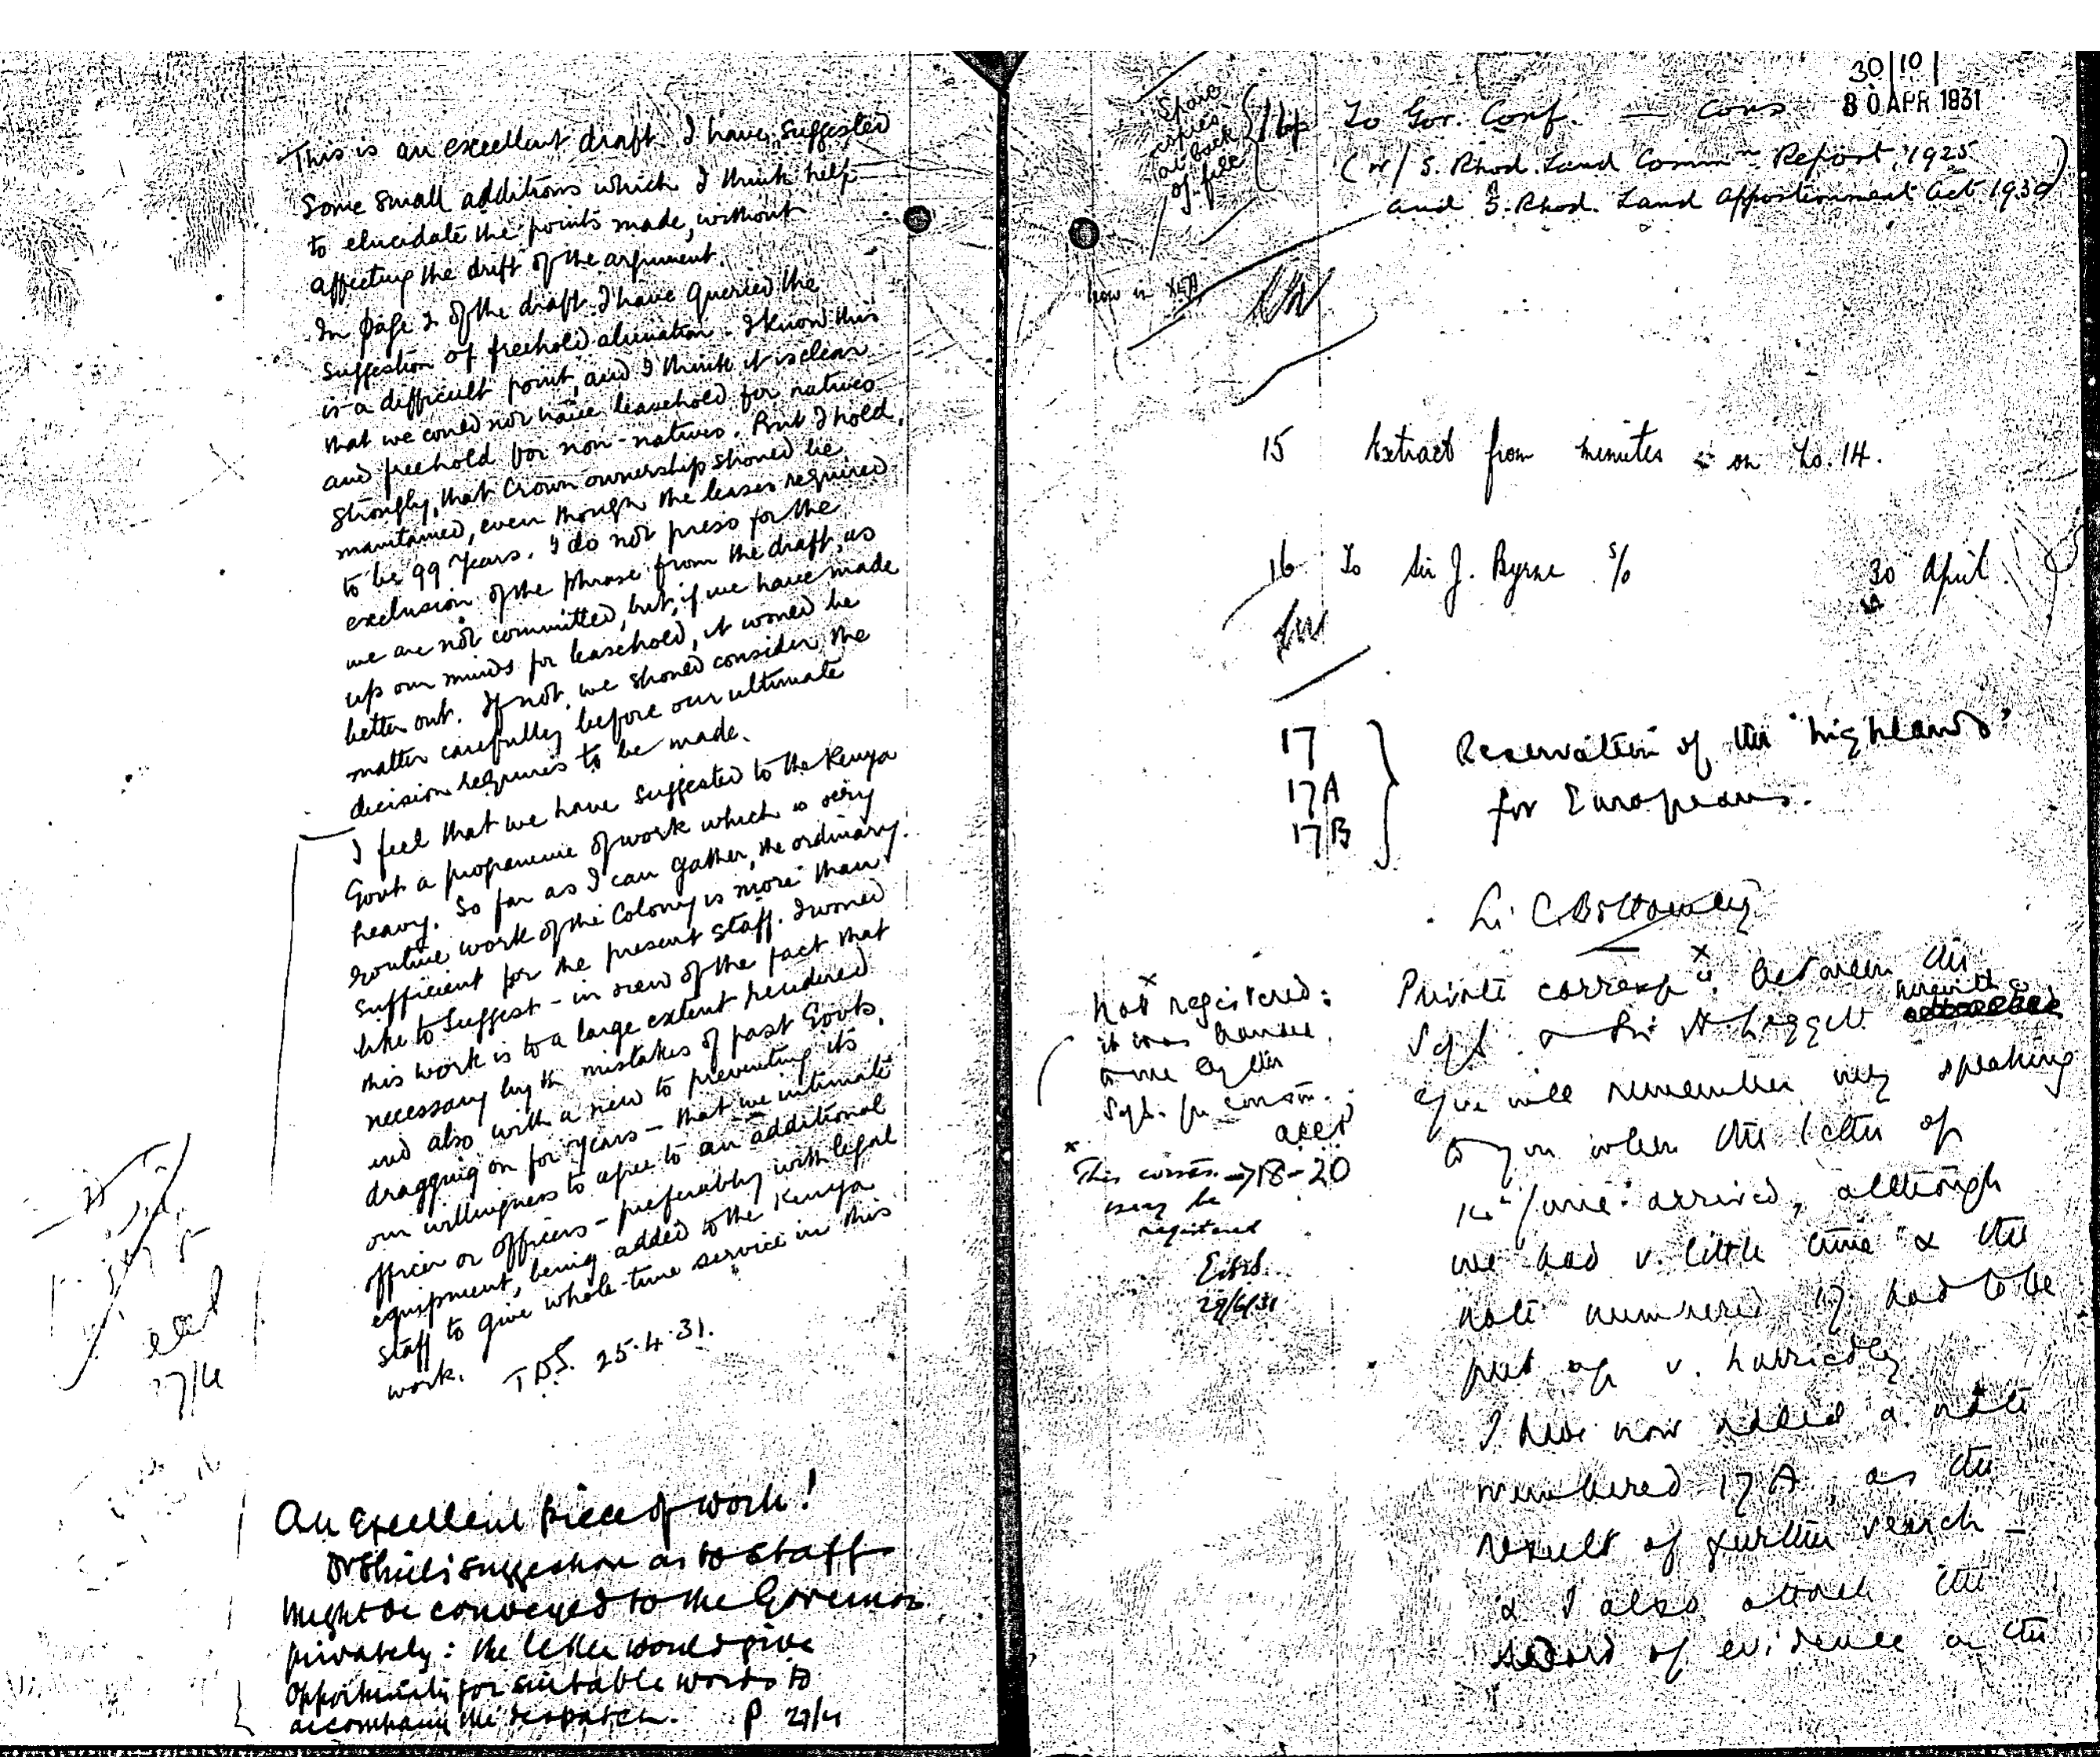 This is an excellent draft. I have suggested
some small additions which I think help
to elucidate the points made, without
affecting the drift of the argument.
In page 2 of the draft I have queried the
suggestion of freehold alienation. I know this
is a difficult point, and I think it is clear
that we could not have leasehold for natives
and freehold for non-natives. But I hold,
strongly, that Crown ownership should be
maintained, even though the leases required
to be 99 years. I do not press for the
exclusion of the phrase from the draft, as
we are not committed, but, if we have made
up our minds for leasehold, it would be
better out. If not, we should consider the
matter carefully before our ultimate
decision requires to be made.
I feel that we have suggested to the Kenya
Govt a programme of work which is very
heavy. So far as I can gather, the ordinary
routine work of the Colony is more than
sufficient for the present staff. I would
like to suggest - in view of the fact that
this work is to a large extent rendered
necessary by the mistakes of past Govts,
and also with a view to preventing its
dragging on for years - that we intimate
our willingness to agree to an additional
officer or officers - preferably with legal
equipment, being added to the Kenya
staff to give whole-time service in this
work. TDS. 25.4.31.
An excellent piece of work!
Dr Shiels suggestion as to staff
might be conveyed to the Governor
privately: the letter would give
opportunity for suitable words to
accompany the despatch. P 27/4
27/4
30/10/
30 APR 1931
Spare
copies
at back
of file
To Gov. Conf. — Cons
(w/ S. Rhod. Land Commn Report, 1925
and S. Rhod. Land Apportionment Act 1930)
now in
15 Extract from minutes - on No. 14.
16 To Sir J. Byrne s/o 30 April.
17
17A
17B
Reservation of the 'highlands'
for Europeans.
Sir C. Bottomley
Private corresp. between the
herewith
S of S. & Sir H Leggett attached
You will remember my speaking
to you when the letter of
June arrived, although
we had v. little time & the
note numbered 17 had to be
put up v. hurriedly
I have now added a note
numbered 17A, as the
result of further search -
& I also attach the
record of evidence on the
x
Not registered:
it was handed
to me by the
S of S. for consn.
x
This corres. → 18-20
may be
registered
29/6/31